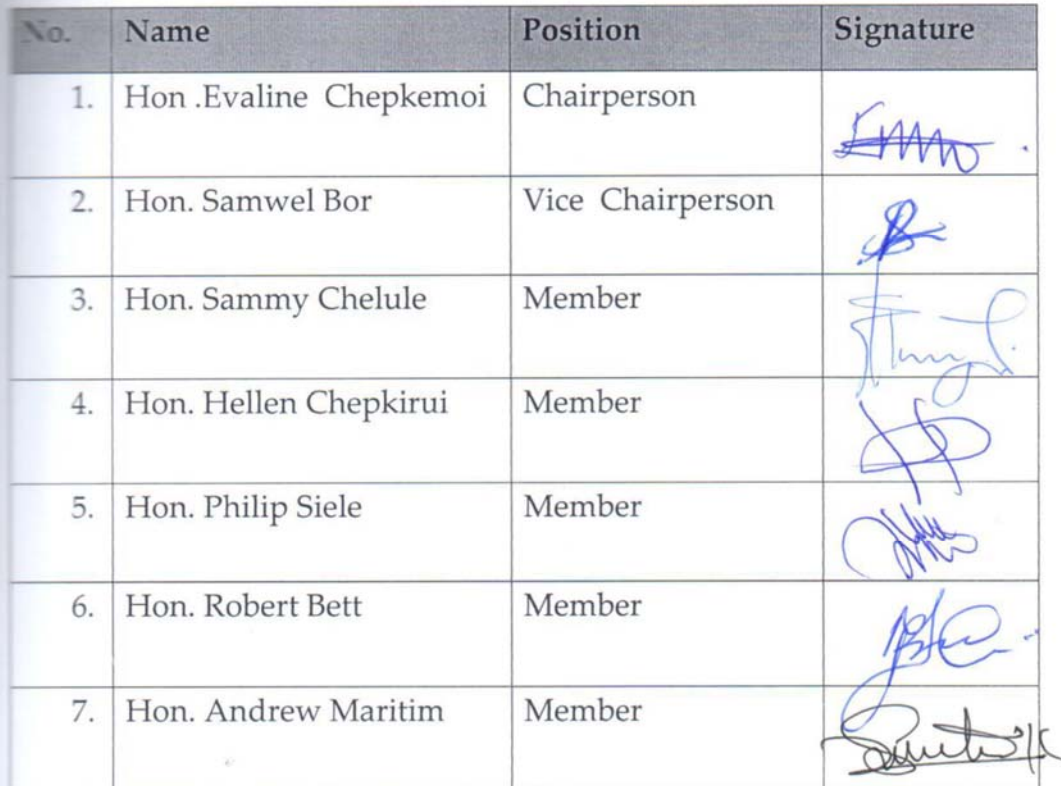 No. Name Position Signature
1. Hon .Evaline Chepkemoi Chairperson
2. Hon. Samwel Bor Vice Chairperson
3. Hon. Sammy Chelule Member
4. Hon. Hellen Chepkirui Member
5. Hon. Philip Siele Member
6. Hon. Robert Bett Member
7. Hon. Andrew Maritim Member